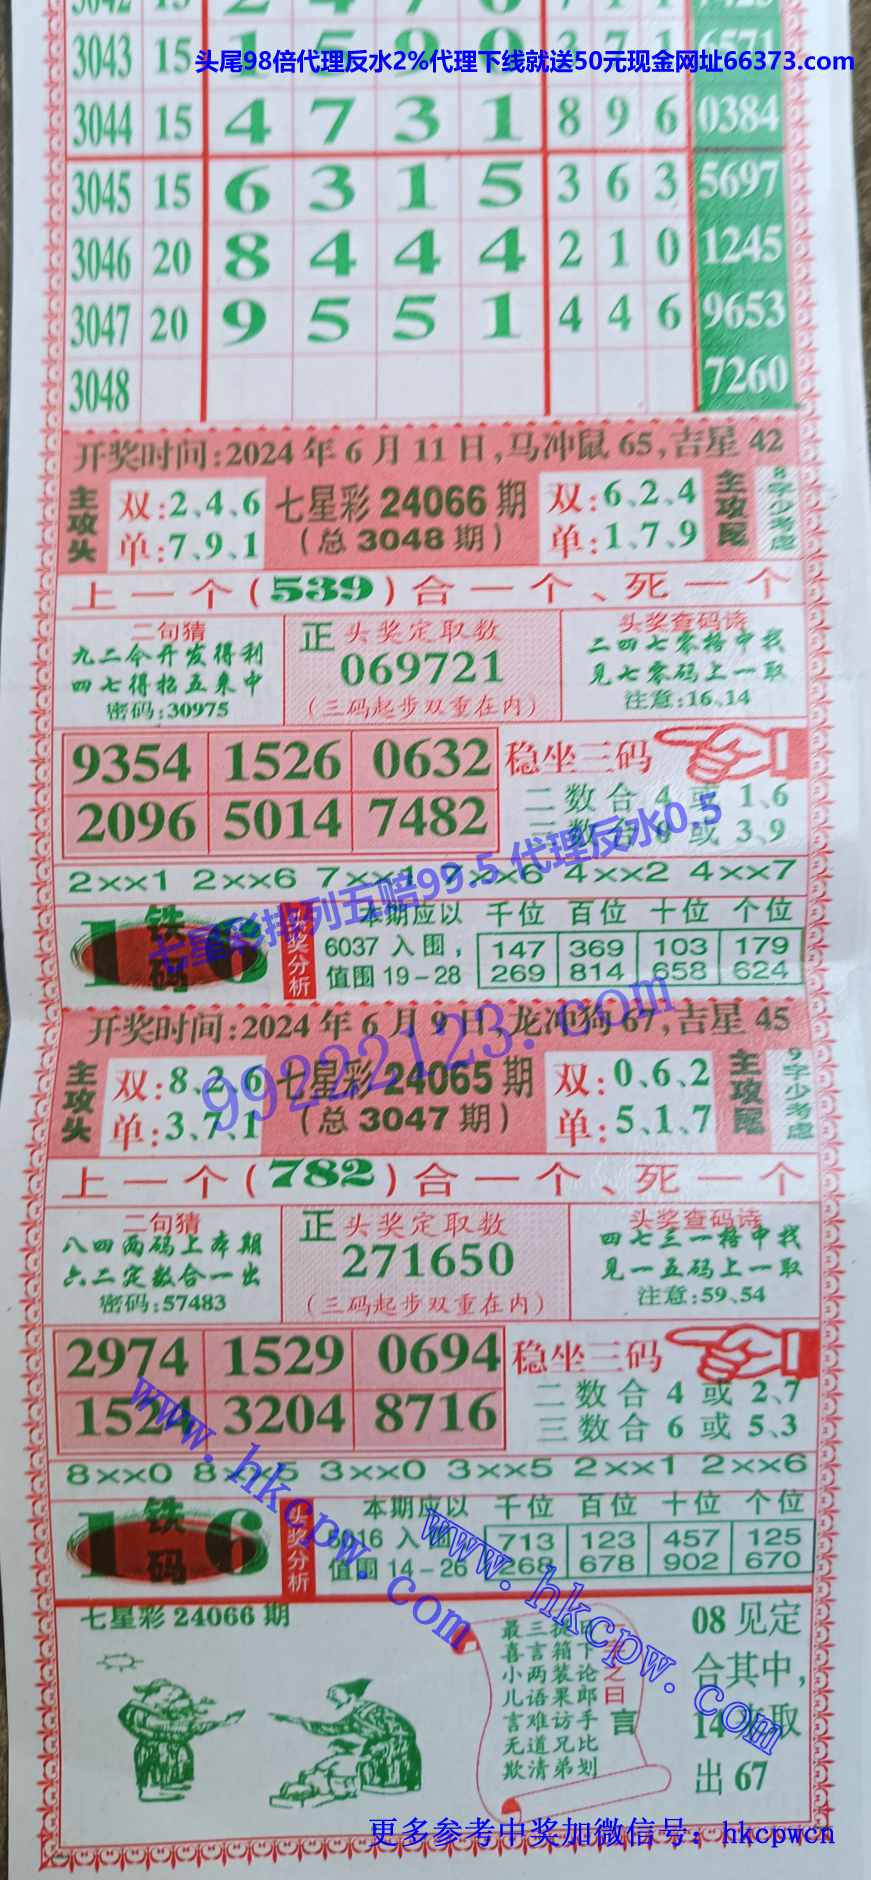 头尾98倍代理反水2%代理下线就送50元现金网址66373.com
3043 15 1 5 9 9 3 7 1 6571
3044 15 4 7 3 1 8 9 6 0384
3045 15 6 3 1 5 3 6 3 5697
3046 20 8 4 4 4 2 1 0 1245
3047 20 9 5 5 1 4 4 6 9653
3048 7260
开奖时间:2024年6月11日,马冲鼠65,吉星42
主攻头 双:2、4、6 七星彩24066期 双:6、2、4 主攻尾 8字少考虑
单:7、9、1 (总3048期) 单:1、7、9
上一个(539)合一个、死一个
二句猜 正 头奖定取数 头奖查码诗
九二今开发得利 069721 二四七零格中找
四七得招五来中 见七零码上一取
密码:30975 (三码起步双重在内) 注意:16、14
9354 1526 0632 稳坐三码
2096 5014 7482 二数合 4 或 1、6
三数合 或 3、9
2××1 2××6 7××1 7××6 4××2 4××7
铁码 16 头奖分析 本期应以 千位 百位 十位 个位
6037入围, 147 369 103 179
值围19-28 269 814 658 624
七星彩排列五赔99.5 代理反水0.5
开奖时间:2024年6月9日,龙冲狗67,吉星45
99222123.com
主攻头 双:8、2、6 七星彩24065期 双:0、6、2 主攻尾 9字少考虑
单:3、7、1 (总3047期) 单:5、1、7
上一个(782)合一个、死一个
二句猜 正 头奖定取数 头奖查码诗
八四两码上本期 271650 四七三一格中找
六二定数合一出 见一五码上一取
密码:57483 (三码起步双重在内) 注意:59、54
2974 1529 0694 稳坐三码
1524 3204 8716 二数合 4 或 2、7
三数合 6 或 5、3
8××0 8××5 3××0 3××5 2××1 2××6
铁码 16 头奖分析 本期应以 千位 百位 十位 个位
6016入围 713 123 457 125
值围14-26 268 678 902 670
www.hkcpw.com
www.hkcpw.com
七星彩24066期
08见定
合其中,
14 取
出67
最三
喜言箱下
小两装论
儿语果郎
言难访手
无道兄比
欺清弟划
之曰
言
更多参考中奖加微信号：hkcpwcn